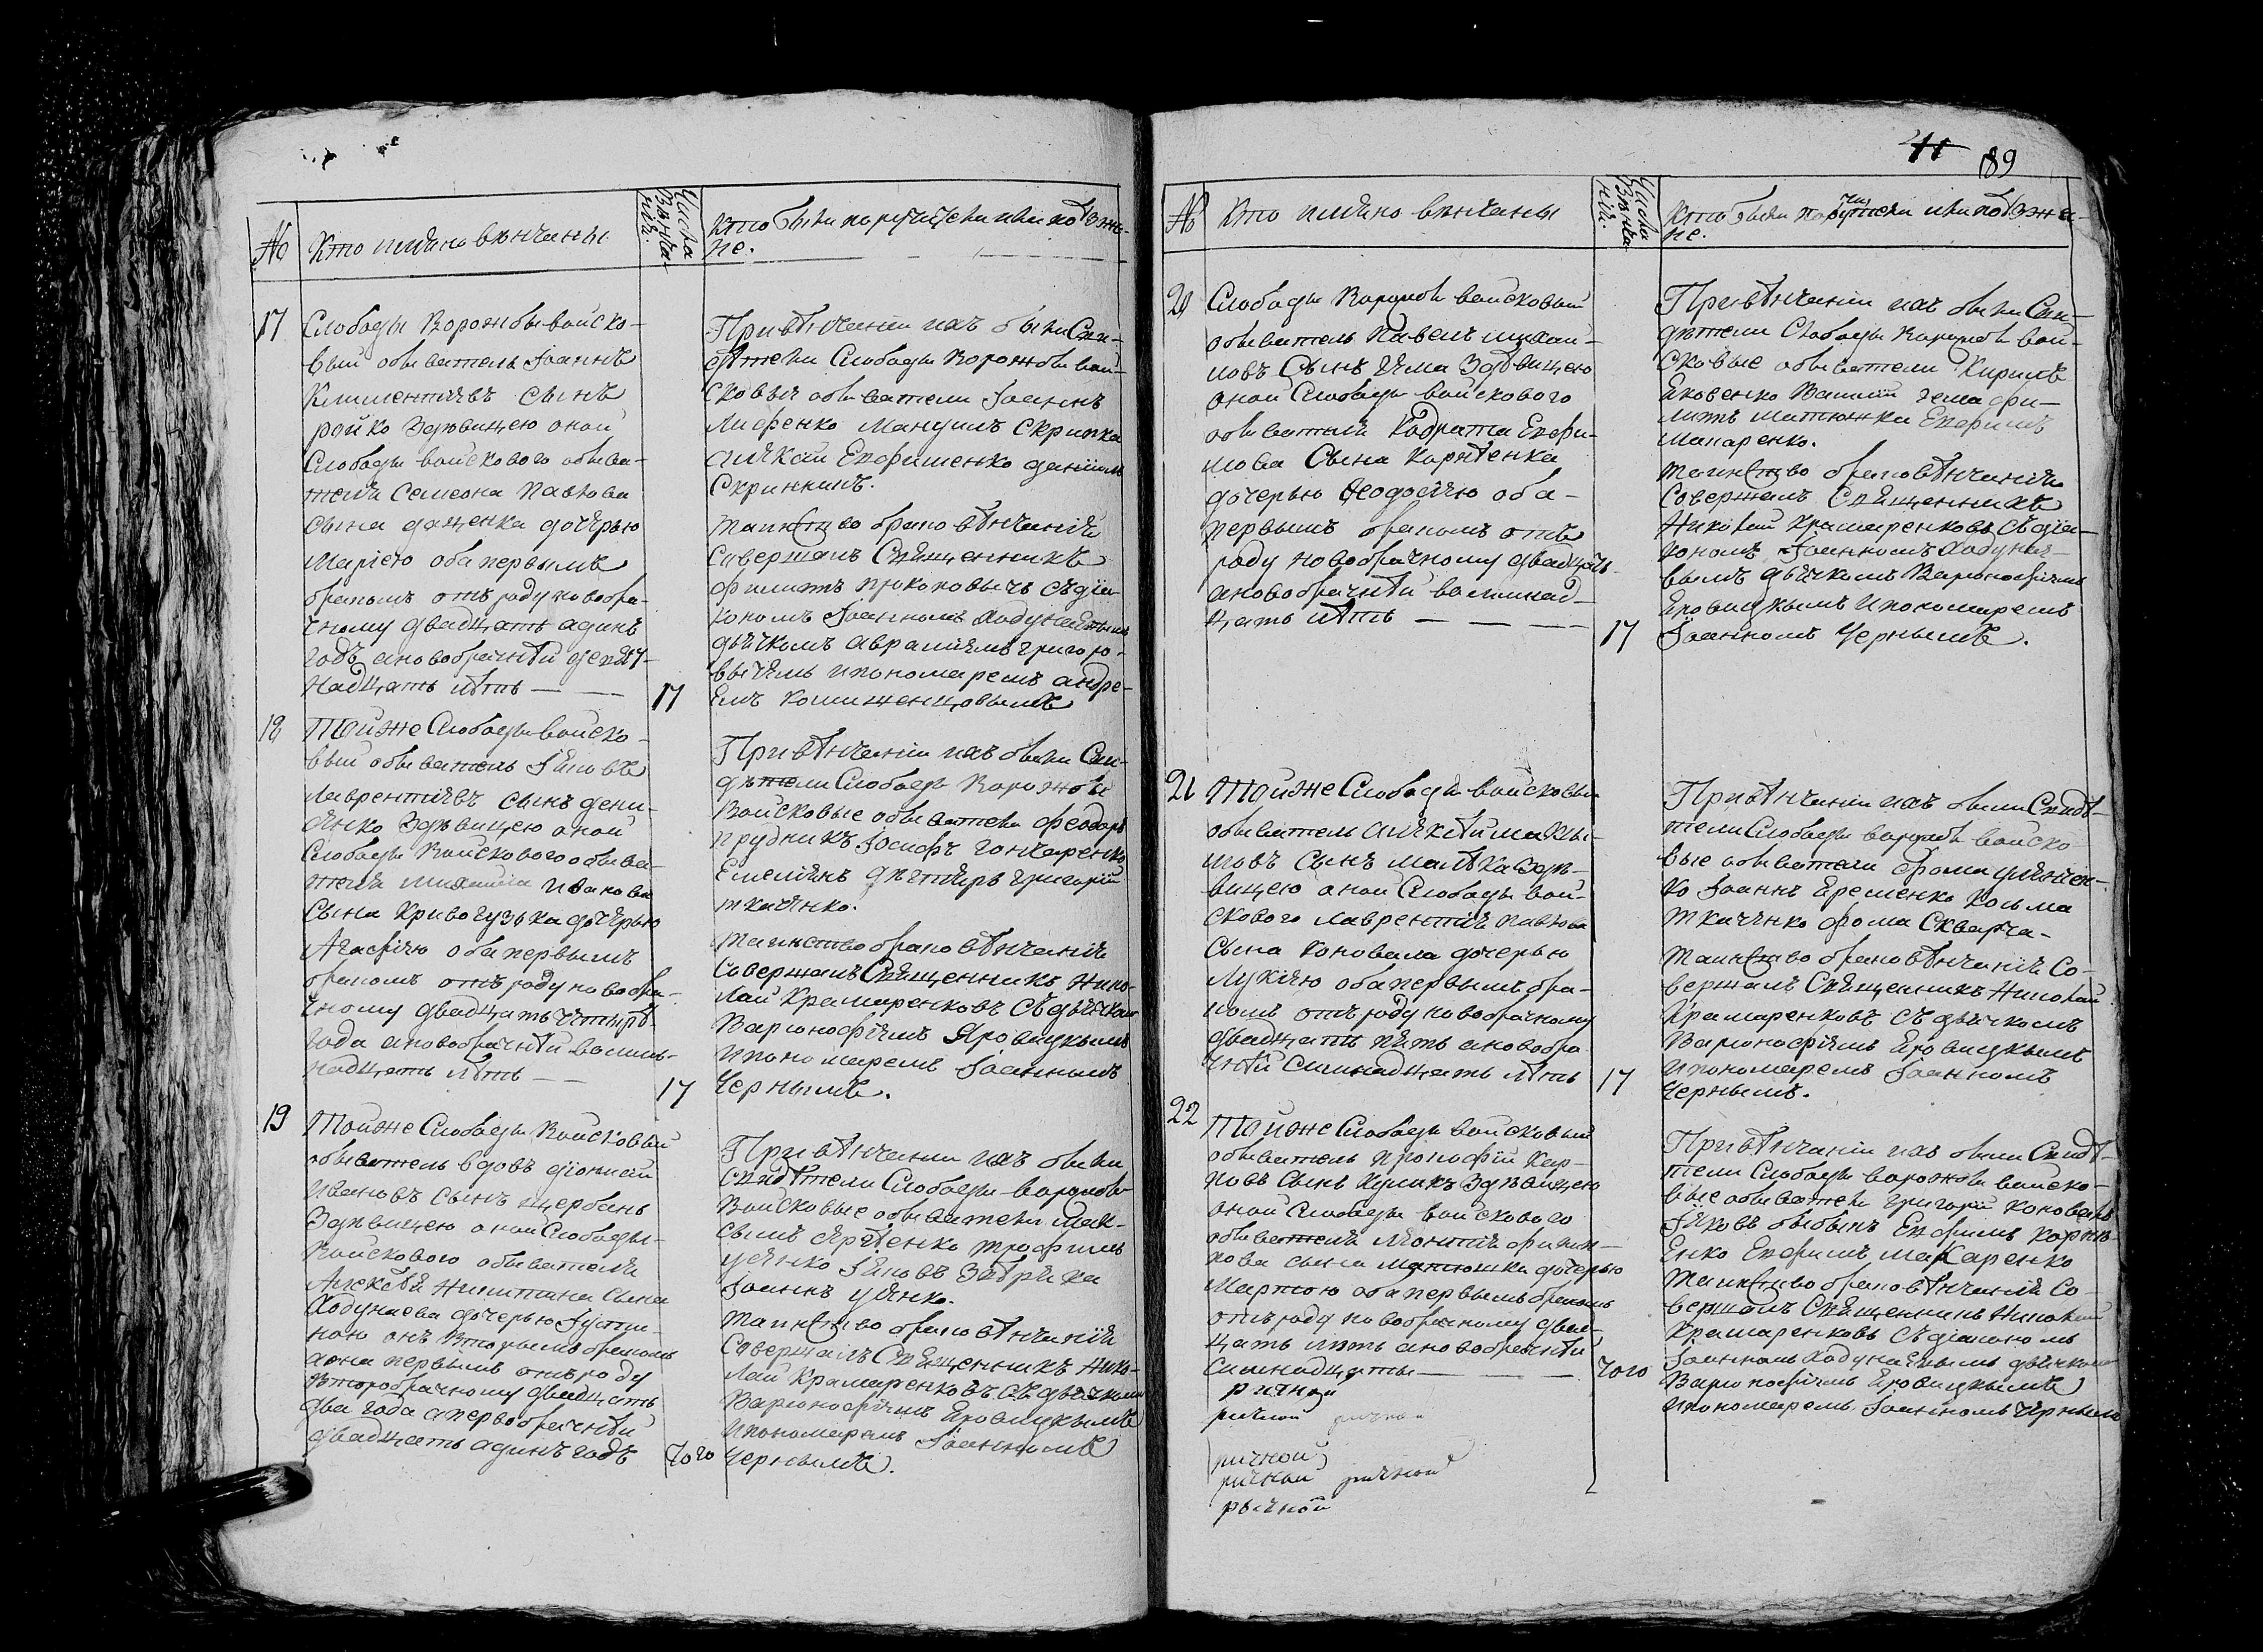 11 189
№
Кто имяно венчаны
Числа Венчаний.
Кто были поручители или поезжа-
не.
17
Слободы Ворожбы войско-
вый обыватель Іоаннъ
Климентіевъ сынъ
ройко здевицею оной
Слободы войскового обыва-
теля Семеона Павлова
сына даценка дочерью
Маріею оба первымъ
бракомъ отъ роду новобра-
чному двадцать адинъ
годъ ановобрачной девят-
надцать летъ
17
При венчаніи ихъ были Сви-
детели Слободы Ворожбы вой-
сковыя обыватели Іоаннъ
Лисфенко Мануилъ Скрипка
Алѣкѣй Евфименко даніилъ
Скрипкинъ.
таинство браковенчанія
Савершалъ Священникъ
филиппъ прокоповичъ съдіа-
кономъ Іоанномъ Ходунаевымъ
дьячкомъ Авраміемъ григоро-
вичемъ ипономаремъ андре-
емъ
18
Тойже Слободы войско-
вый обыватель Іяковъ
Лаврентіевъ сынъ дени-
сенко здевицею оной
Слободы Войскового обыва-
теля Михаила Иванова
Сына Кривогузка дочерью
Агафіею оба первымъ
бракомъ отъ роду новобра-
чному двадцать четыре
года ановобрачной восим-
надцать летъ
17
При венчаніи ихъ были Сви-
детели Слободы Ворожбы
Войсковые обыватели феодоръ
прудникъ Іосифъ гончаренко
Емелянъ григорій
ткаченко.
таинство бракавенчанія
Савершалъ Священникъ Нико-
лай Крамаренковъ съдьячкомъ
Варлонофіемъ Яровицкымъ
ипономаремъ Іоанномъ
Чернымъ.
19
Тойже Слободы Войсковый
обыватель вдовъ діонисій
Ивановъ сынъ щербань
Здевицею оной Слободы
Войскового обывателя
Алексѣя Никитина Сына
Ходунаева дочерью Іусти-
ною онъ вторымъ бракомъ
аона первымъ отъ роду
второбрачному двадцать
два года апервобрачной
двадцать адинъ годъ
того
При венчаніи ихъ были
свидетели Слободы Ворожбы
Войсковые обыватели Мак-
симъ трофимъ
усенко Іяковъ
Іоаннъ усенко.
таинство бракавенчанія
Савершалъ Священникъ Нико-
лай Крамаренковъ съдьячкомъ
Варлонофіемъ Яровицкымъ
ипономаремъ Іоанномъ
Чернымъ.
№
Кто имяно венчаны
Числа Венчаний.
Кто были поручители или поезжа-
не.
20
Слободы Ворожбы войсковый
обыватель Павелъ михай-
ловъ Сынъ здевицею
оной Слободы войскового
обывателя Кодрата Евфи-
мова Сына Корнеенка
дочерью Феодосіею оба
первымъ бракомъ отъ
роду новобрачному двадцать
ановобрачной восимнад-
цать летъ
17
При венчаніи ихъ были Сви-
детели Слободы Ворожбы вой-
сковые обыватели Кирилъ
Яковенко фи-
липъ матюшка Евфимъ
Макаренко.
таинство бракавенчанія
Совершалъ Священникъ
Николай Крамаренковъ съдіа-
кономъ Іоанномъ Ходунае-
вымъ дьячкомъ Варлонофіемъ
Яровицкымъ ипономаремъ
Іоанномъ Чернымъ.
21
Тойже Слободы войсковы
обыватель Алѣкѣй
сынъ здѣ-
вицею оной Слободы вой-
скового Лаврентія Павлова
Сына Коновала дочерью
Лукіею оба первымъ бра-
комъ отъ роду новобрачному
двадцать пять ановобра-
чной симнадцать летъ
17
При венчаніи ихъ были Свиде-
тели Слободы ворожбы войско-
вые обыватели фома
Іоаннъ Яременко Козьма
ткаченко фома Скварча-
таинство бракавенчанія Со-
вершалъ Священникъ Николай
Крамаренковъ съ дьячкомъ
Варлонофіемъ Яровицкымъ
ипономаремъ Іоанномъ
Чернымъ.
22
Тойже Слободы войсковый
обыватель прокофій Кар-
повъ Сынъ Кулакъ здевицею
оной Слободы войскового
обывателя Леонтія филип-
пова сына матюшки дочерью
Марфою оба первымъ бракомъ
отъ роду новобрачному двад-
цать летъ ановобрачной
симнадцать
того
При венчаніи ихъ были Свиде-
тели Слободы ворожбы войско-
вые обыватели григорій Коновалъ
Іяковъ Евфимъ Корне-
енко Евфимъ макаренко
таинство бракавенчанія Со-
вершалъ Священникъ Николай
Крамаренковъ съдіакономъ
Іоанномъ Ходунаевымъ дьячкомъ
Варлонофіемъ Яровицкымъ
ипономаремъ Іоанномъ Чернымъ
ричной
ричной ричной
ричной
ричной ричной
рычной